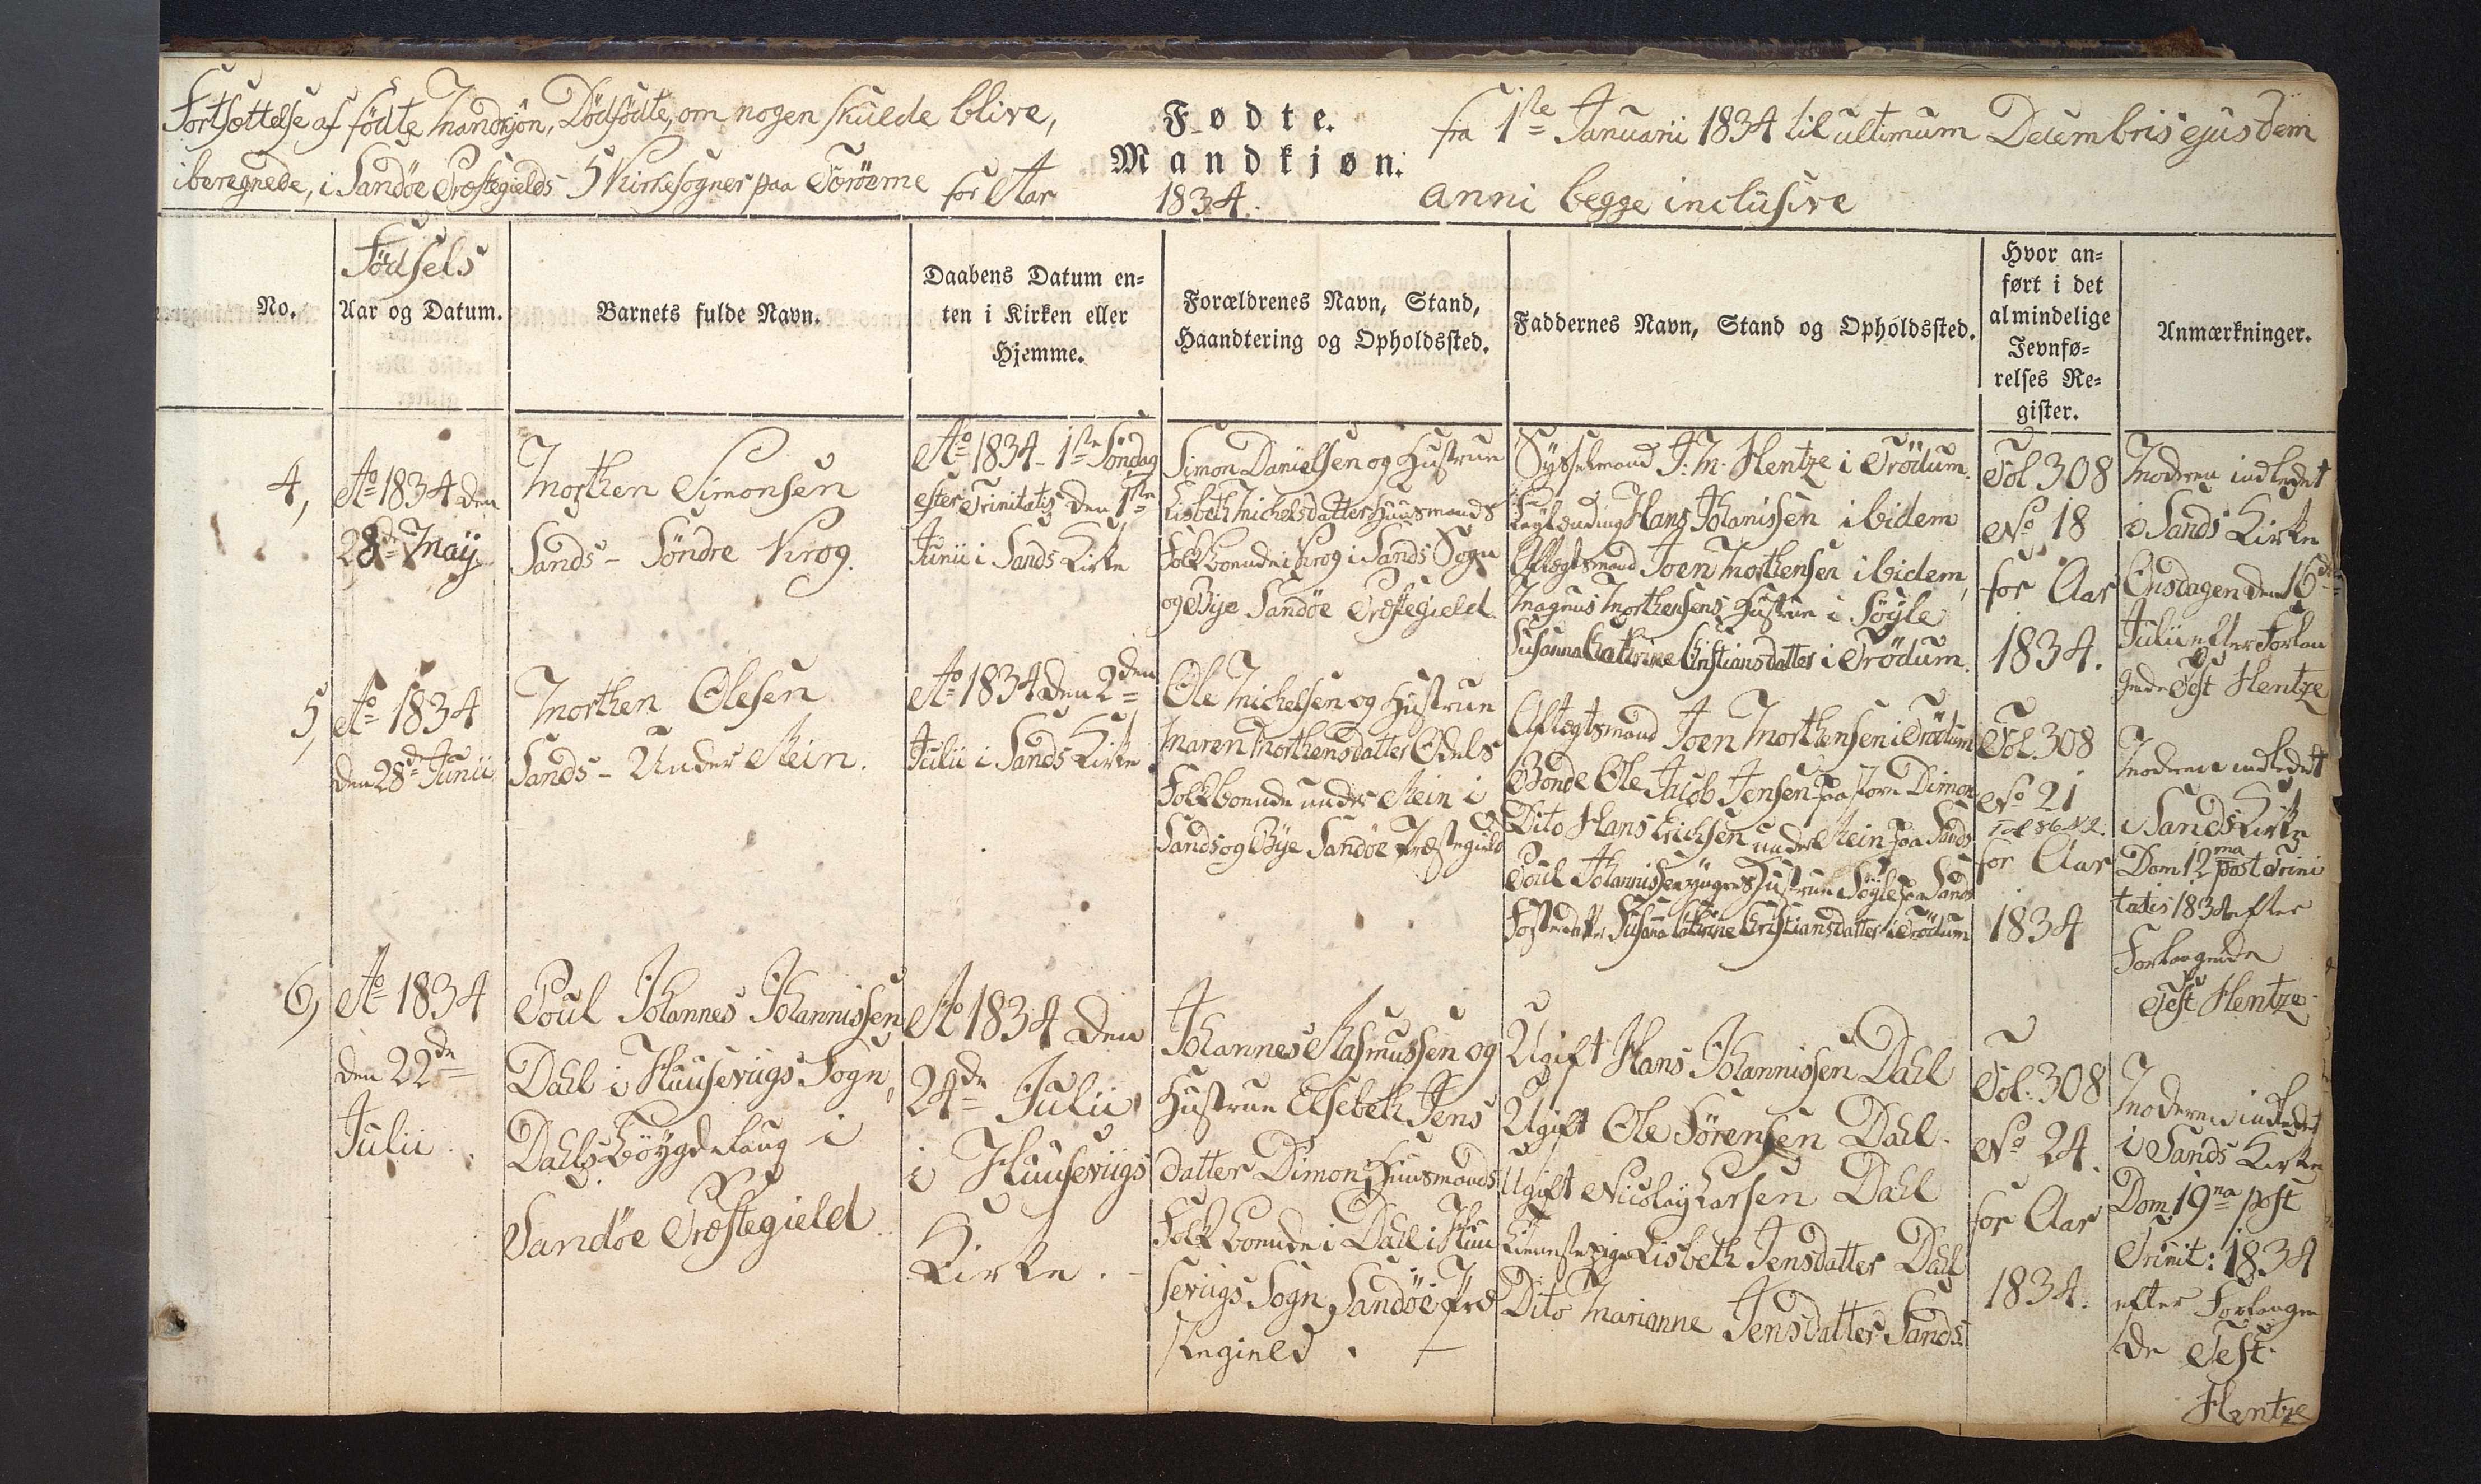 Fortsættelse af fødte Mandkjön, Dödfødte, om nogen skulde blive,
iberegnede, i Sandöe Præstegields 5 Kirkesogner paa Færöerne for Aar
Fødte.
Mandkjøn.
1834.
fra 1ste Januarii 1834 til ultimum Decembris ejusdem
anni begge inclusive
No.
Födsels
Aar og Datum.
Barnets fulde Navn.
Daabens Datum en-
ten i Kirken eller
Hjemme.
Forældrenes Navn, Stand,
Haandtering og Opholdssted.
Faddernes Navn, Stand og Opholdssted.
Hvor an-
ført i det
almindelige
Jevnfø-
relses Re-
gister.
Anmærkninger.
4,
Ao 1834 den
28de Maij
Morthen Simonsen
Sands - Söndre Krog.
Ao 1834 - 1ste Söndag
efter Trinitatis den 1ste
Junii i Sands Kirke
Simon Danielsen og Hustrue
Lisbeth Michelsdatter Huusmands
Folk boende i Krog i Sands Sogn
og Bÿe Sandöe Præstegield.
Sysselmand J: M. Hentze i Trödum.
Hans Johanissen ibidem
Aftægtsmand Joen Morthensen ibidem,
Magnus Morthensens Hustrue i Söyle
Susanna Cathrine Christiansdatter i Trödum.
Fol. 308
No 18
for Aar
1834.
Moderen indledet
i Sands Kirke
Onsdagen den 16de
Julii efter Forlan
gende Test Hentze
5,
Ao 1834
den 28de Junii
Morthen Olesen
Sands - Under Rein.
Ao 1834 den 2den
Julii i Sands Kirke
Ole Michelsen og Hustrue
Maren Morthensdatter Odels
Folk boende under Rein i
Sands og Bÿe Sandöe Præstegield
Aftægtsmand Joen Morthensen i Trödum
Bonde Ole Jacob Jensen paa store Dimon
Dito Hans Erichsen under Rein paa Sands
Poul Johannissen yngres Hustrue i Söyle paa Sands
Fosterdatter Susanna Cathrine Christiansdatter i Trödum
Fol. 308
No 21
for Aar
1834
Moderen indledet
i Sands Kirke
Dom 12ma post Trini
tatis 1834 efter
Forlangende
Test Hentze.
6,
Ao 1834
den 22de
Julii.
Poul Johannes Johannissen
Dahl i Huuseviigs Sogn,
Dahls Böygdelaug i
Sandöe Præstegield.
Ao 1834 den
24de Julii
i Huusevigs
Kirke.
Johannes Rasmussen og
Hustrue Elsebeth Jens
datter Dimon, Huusmands
Folk boende i Dahl i Huu
sevigs Sogn, Sandöe Præ
stegield.
Ugift Hans Johannissen Dahl
Ugift Ole Sörensen Dahl.
Ugift Nicolaÿ Larsen Dahl
Tieneste pige Lisbeth Jensdatter Dahl
Dito Marianne Jensdatter Sands.
Fol. 308
No 24.
for Aar
1834.
Moderen indledet
i Sands Kirke
Dom 19na post
Trinit: 1834
efter Forlangen
de Test.
Hentze